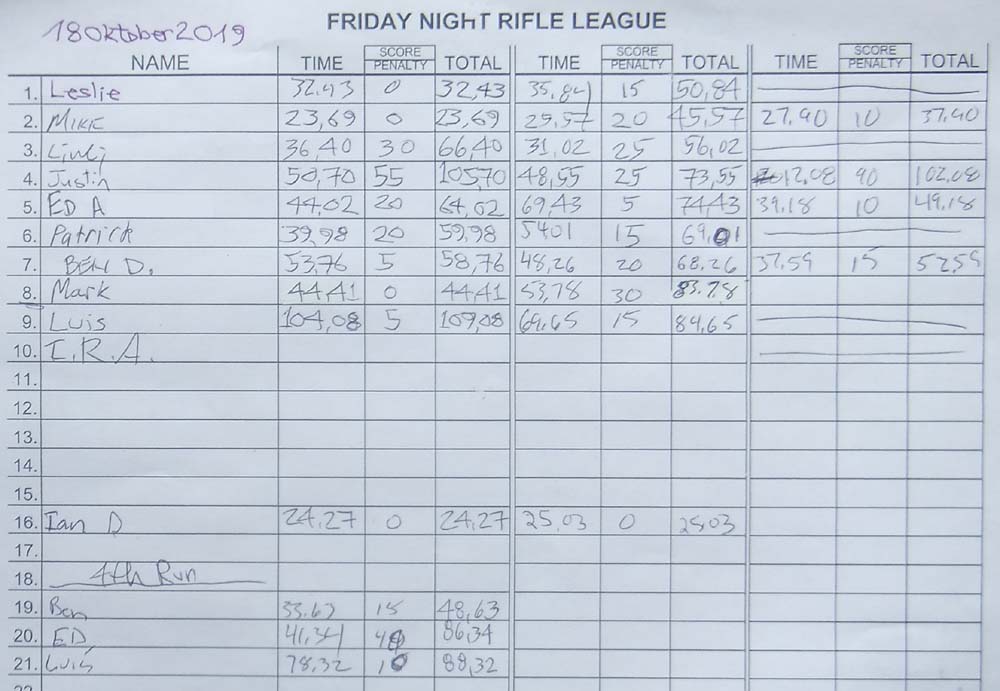 18 Oktober 2019
FRIDAY NIGHT RIFLE LEAGUE
NAME TIME SCORE PENALTY TOTAL TIME SCORE PENALTY TOTAL TIME SCORE PENALTY TOTAL
1. Leslie 32,43 0 32,43 35,84 15 50,84
2. MIKE 23,69 0 23,69 25,57 20 45,57 27,90 10 37,90
3. 36,40 30 66,40 31,02 25 56,02
4. Justin 50,70 55 105,70 48,55 25 73,55 12,08 90 102,08
5. ED A 44,02 20 64,02 69,43 5 74,43 39,18 10 49,18
6. Patrick 39,98 20 59,98 5401 15 69,01
7. BEN D. 53,76 5 58,76 48,26 20 68,26 37,59 15 52,59
8. Mark 44,41 0 44,41 53,78 30 83.78
9. Luis 104,08 5 109,08 69,65 15 84,65
10. I.R.A.
11.
12.
13.
14.
15.
16. Ian D 24,27 0 24,27 25,03 0 25,03
17.
18. 4th Run
19. Ben 33.63 15 48,63
20. ED 41,34 86,34
21. Luis 78,32 10 88,32